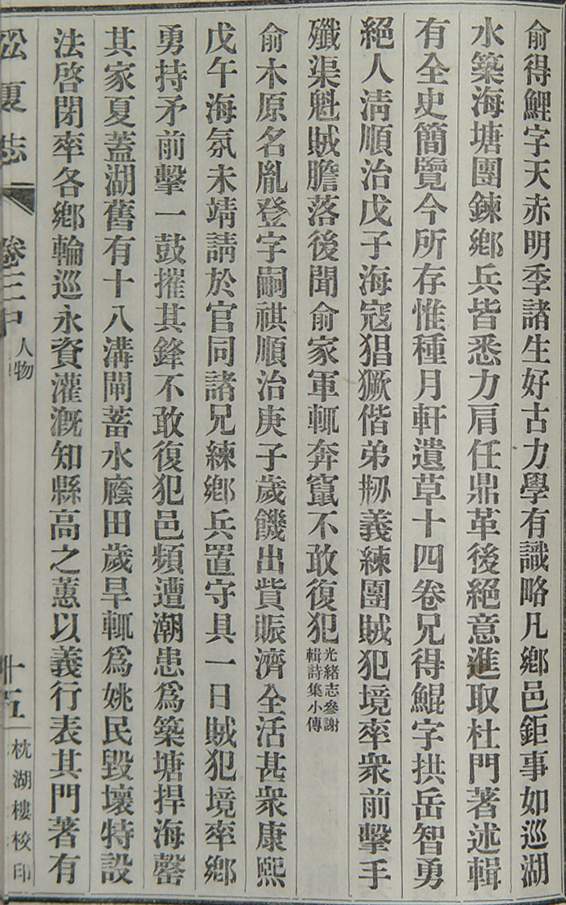 俞得鯉字天赤明季諸生好古力學有識略凡鄉邑鉅事如巡湖
水築海塘團鍊鄉兵皆悉力肩任鼎革後絕意進取杜門著述輯
有全史簡覽今所存惟種月軒遺草十四卷兄得鯤字拱岳智勇
絕人淸順治戊子海寇猖獗偕弟捌義練團賊犯境率衆前擊手
殲渠魁賊膽落後聞俞家軍輒奔竄不敢復犯光緒志參謝輯詩集小傳
俞木原名胤登字嗣祺順治庚子歲饑出貲賑濟全活甚衆康熙
戊午海氛未靖請於官同諸兄練鄉兵置守具一日賊犯境率鄉
勇持矛前擊一鼓摧其鋒不敢復犯邑頻遭潮患爲築塘捍海罄
其家夏蓋湖舊有十八溝閘蓄水廕田歲旱輒爲姚民毀壞特設
法啓閉率各鄉輪巡永資灌漑知縣高之蕙以義行表其門著有
松夏志
卷三中
人物
十五
枕湖樓校印